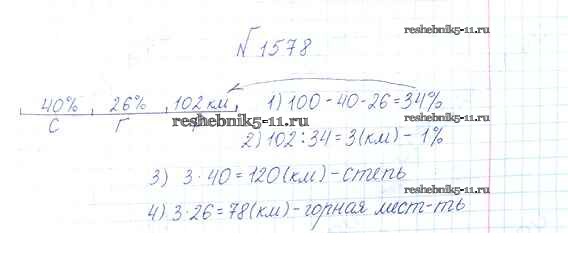 reshebnik5-11.ru
№1578
40% 26% 102 км 1) 100 - 40 - 26 = 34%
С Г reshebnik5-11.ru
2) 102 : 34 = 3 (км) - 1%
3) 3 · 40 = 120 (км) - степь
reshebnik5-11.ru
4) 3 · 26 = 78 (км) - горная мест-ть